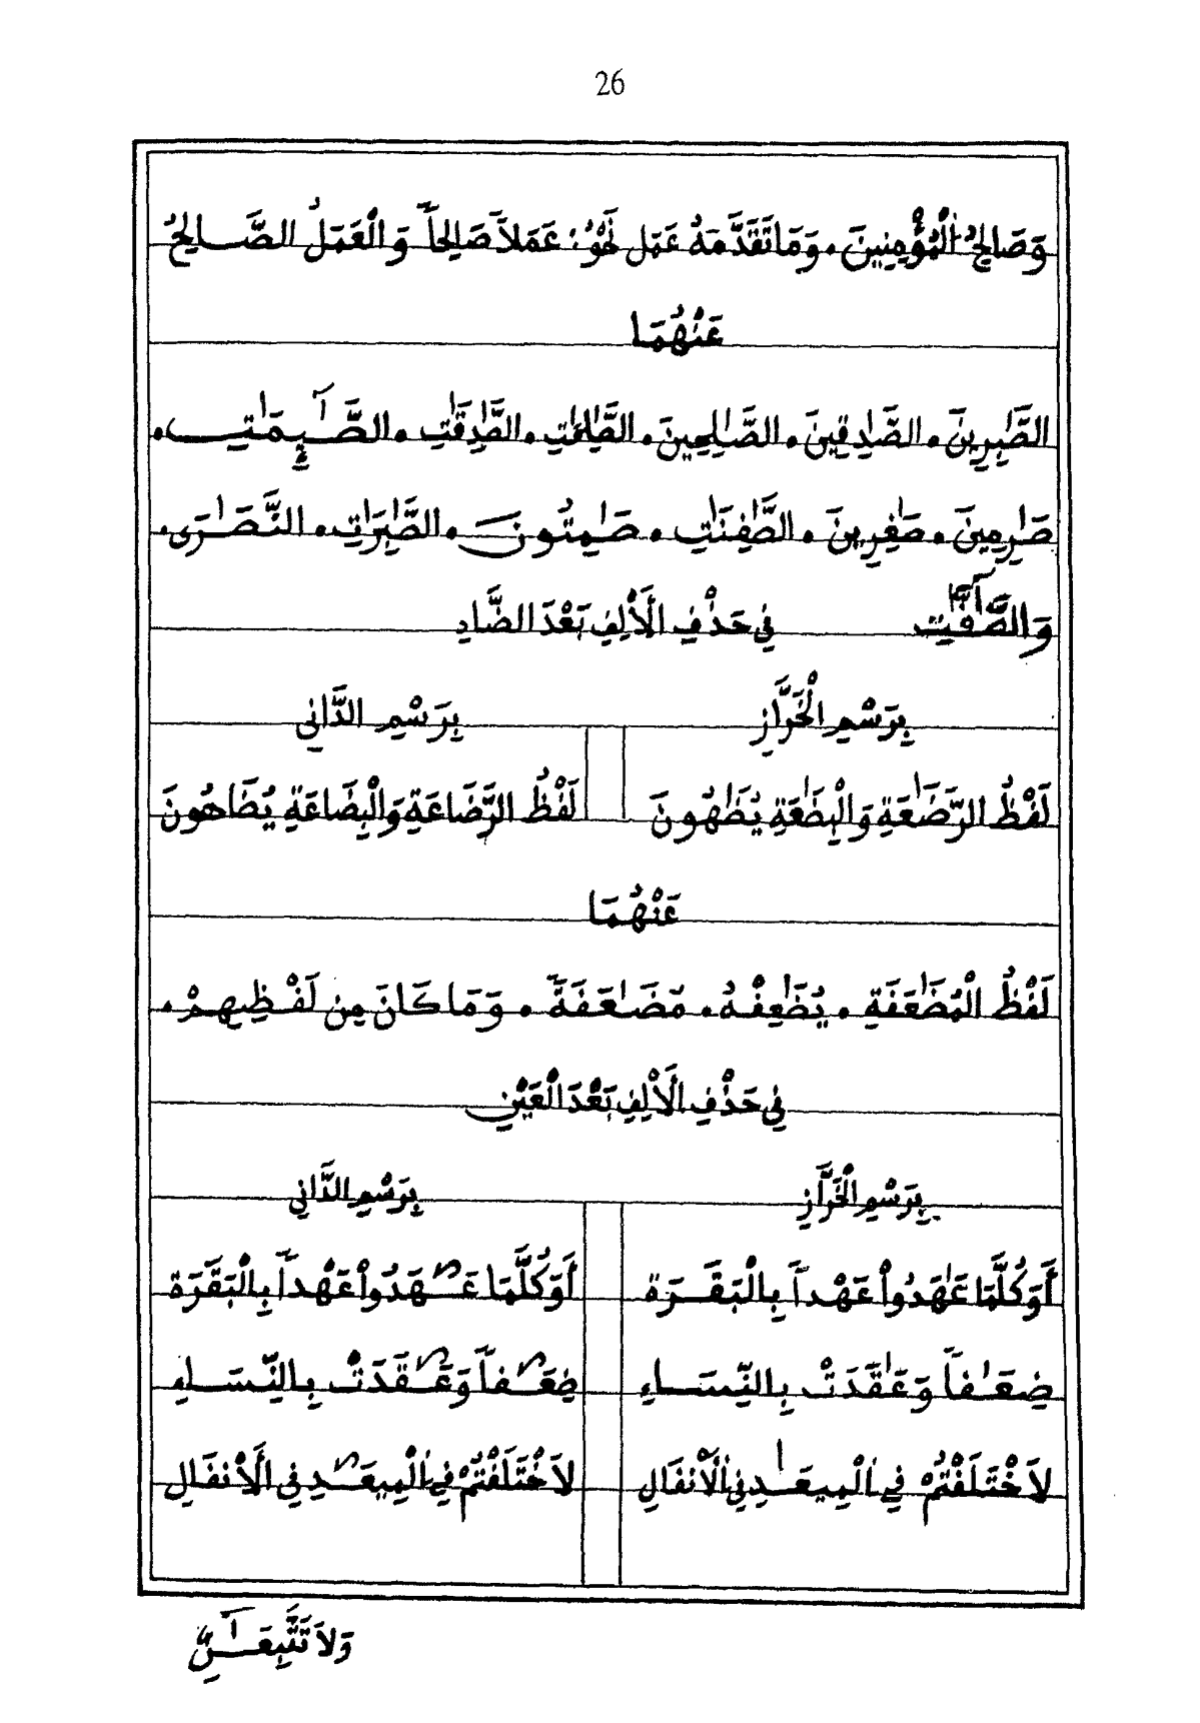 26
وَصَالِحُ الْمُؤْمِنِينَ. وَمَا تَقَدَّمَهُ عَمَل نَحْوُ: عَمَلاً صَالِحاً وَالْعَمَلُ الصَّالِحُ
عَنْهُمَا
الصَّٰبِرِينَ. الصَّٰدِقِينَ. الصَّٰلِحِينَ. الصَّٰلِحَٰتِ. الصَّٰدِقَٰتِ. الصَّٰٓئِمَٰتِ.
صَٰرِمِينَ. صَٰغِرِينَ. الصَّٰفِنَٰتِ. صَٰمِتُونَ. الصَّٰبِرَٰتِ. النَّصَٰرَى.
وَالصَّٰٓفَّٰتِ فِي حَذْفِ الَألِفِ بَعْدَ الضَّادِ
بِرَسْمِ الْخَرَّازِ بِرَسْمِ الدَّانِي
لَفْظُ الرَّضَٰعَةِ وَالْبِضَٰعَةِ يُضَٰهُونَ لَفْظُ الرَّضَاعَةِ وَالْبِضَاعَةِ يُضَاهُونَ
عَنْهُمَا
لَفْظُ الْمُضَٰعَفَةِ. يُضَٰعِفْهُ. مُضَٰعَفَةً. وَمَا كَانَ مِن لَفْظِهِمْ.
فِي حَذْفِ الَألِفِ بَعْدَ الْعَيْنِ
بِرَسْمِ الْخَرَّازِ بِرَسْمِ الدَّانِي
أَوَكُلَّمَا عَٰهَدُواْ عَهْداً بِالْبَقَرَة أَوَكُلَّمَا عَٰهَدُواْ عَهْداً بِالْبَقَرَة
ضِعَٰفاً وَعَٰقَدَتْ بِالنِّسَاءِ ضِعَٰفاً وَعَٰقَدَتْ بِالنِّسَاءِ
لاَخْتَلَفْتُمْ فِي الْمِيعَٰدِ فِي الَأنْفَالِ لاَخْتَلَفْتُمْ فِي الْمِيعَٰدِ فِي الَأنْفَالِ
وَلاَ تَتَّبِعَٰٓنِّ